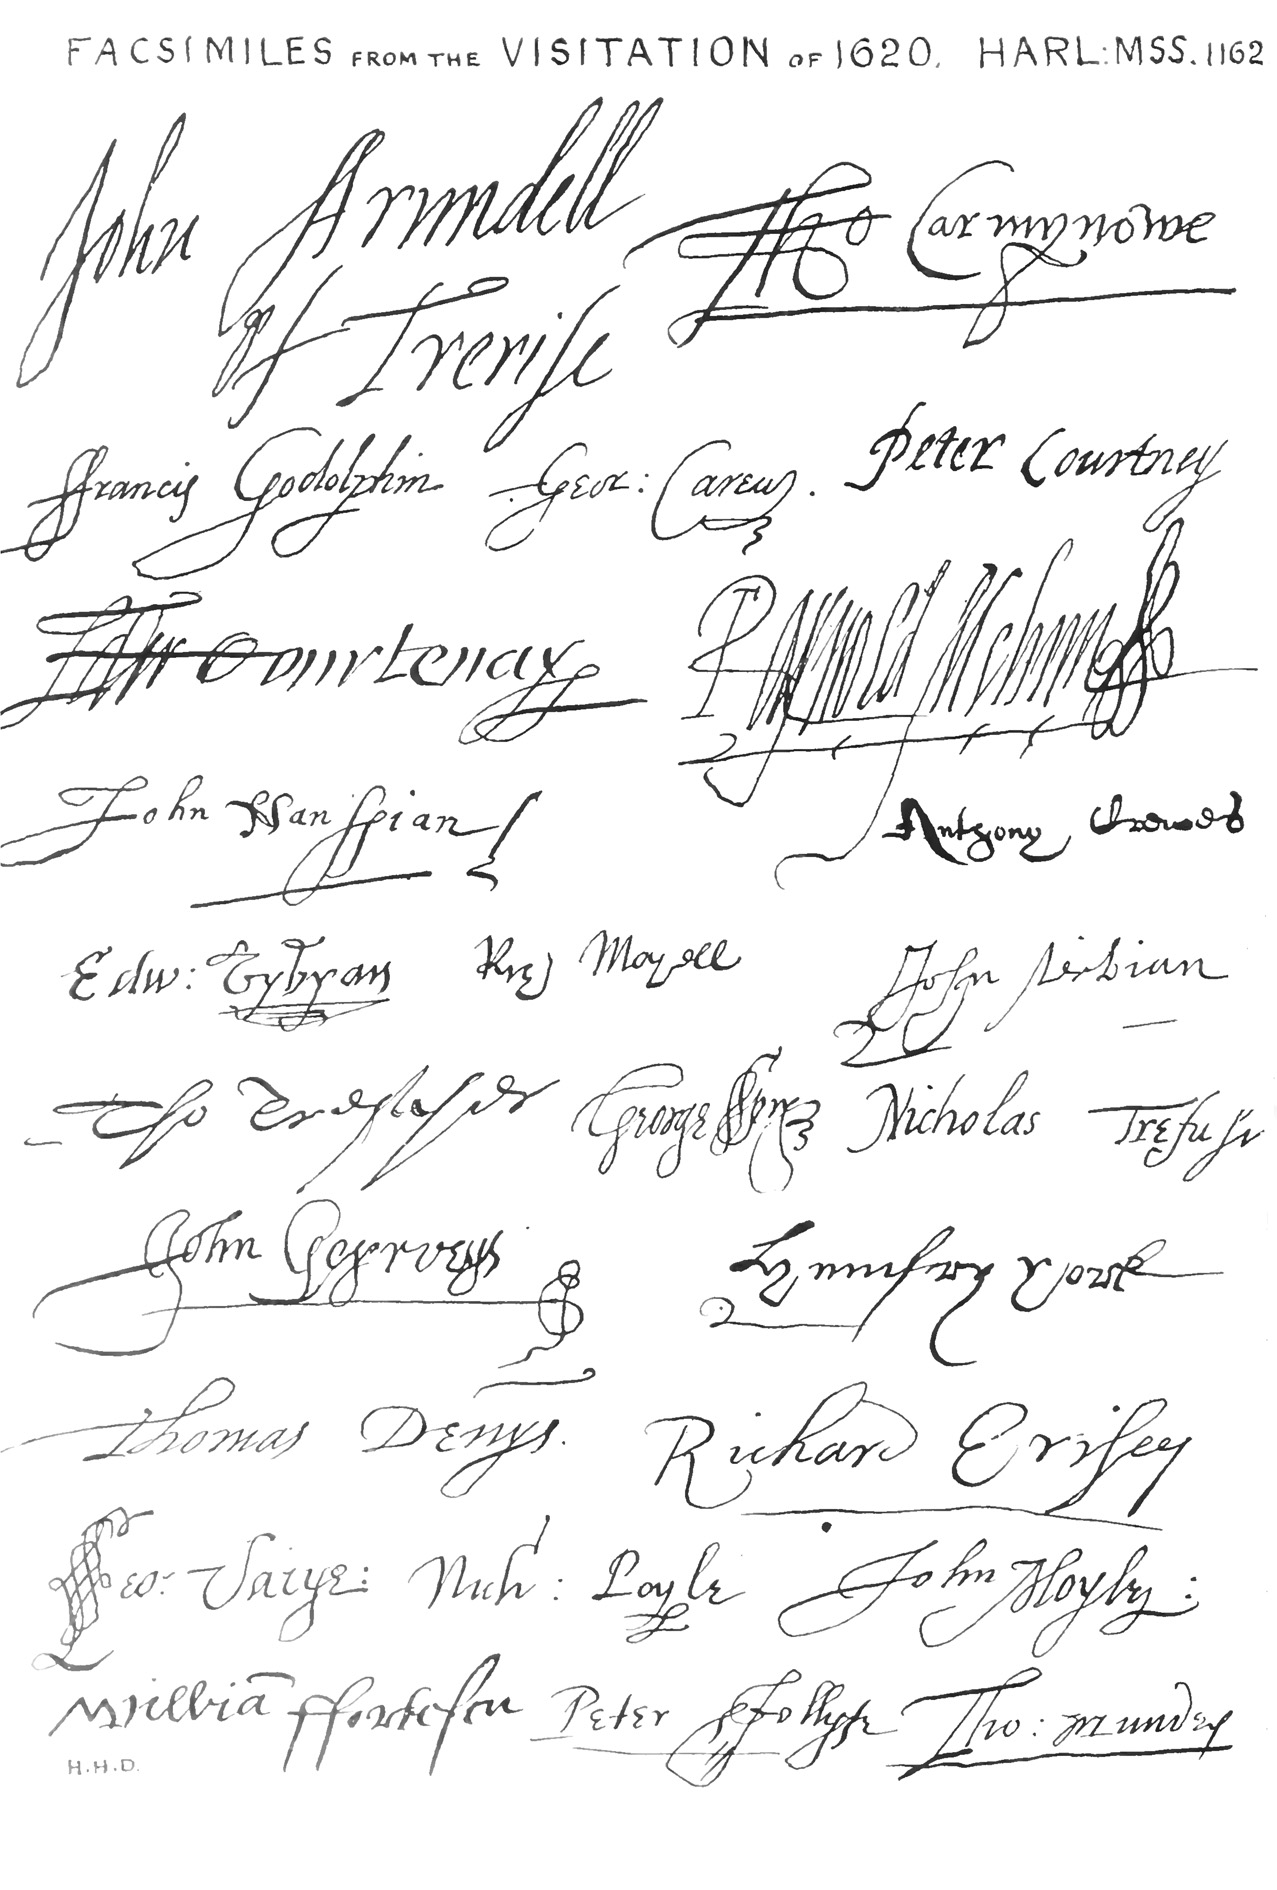 FACSIMILES FROM THE VISITATION OF 1620. HARL: MSS. 1162
John Arundell
of Trerise
Tho Carmynowe
Francis Godolphin Geor: Carew. Peter Courtney
Edw Courtenay Raynold Mohun
John Nanspian Anthony
Edw: Tybyan John
Tho George Nicholas
John Gegrveys Humfrey York
Thomas Denys. Richard Erisey
Geo: Nich: Loyle John Moyle:
Williā ffortescu Peter Tho: mundey
H.H.D.